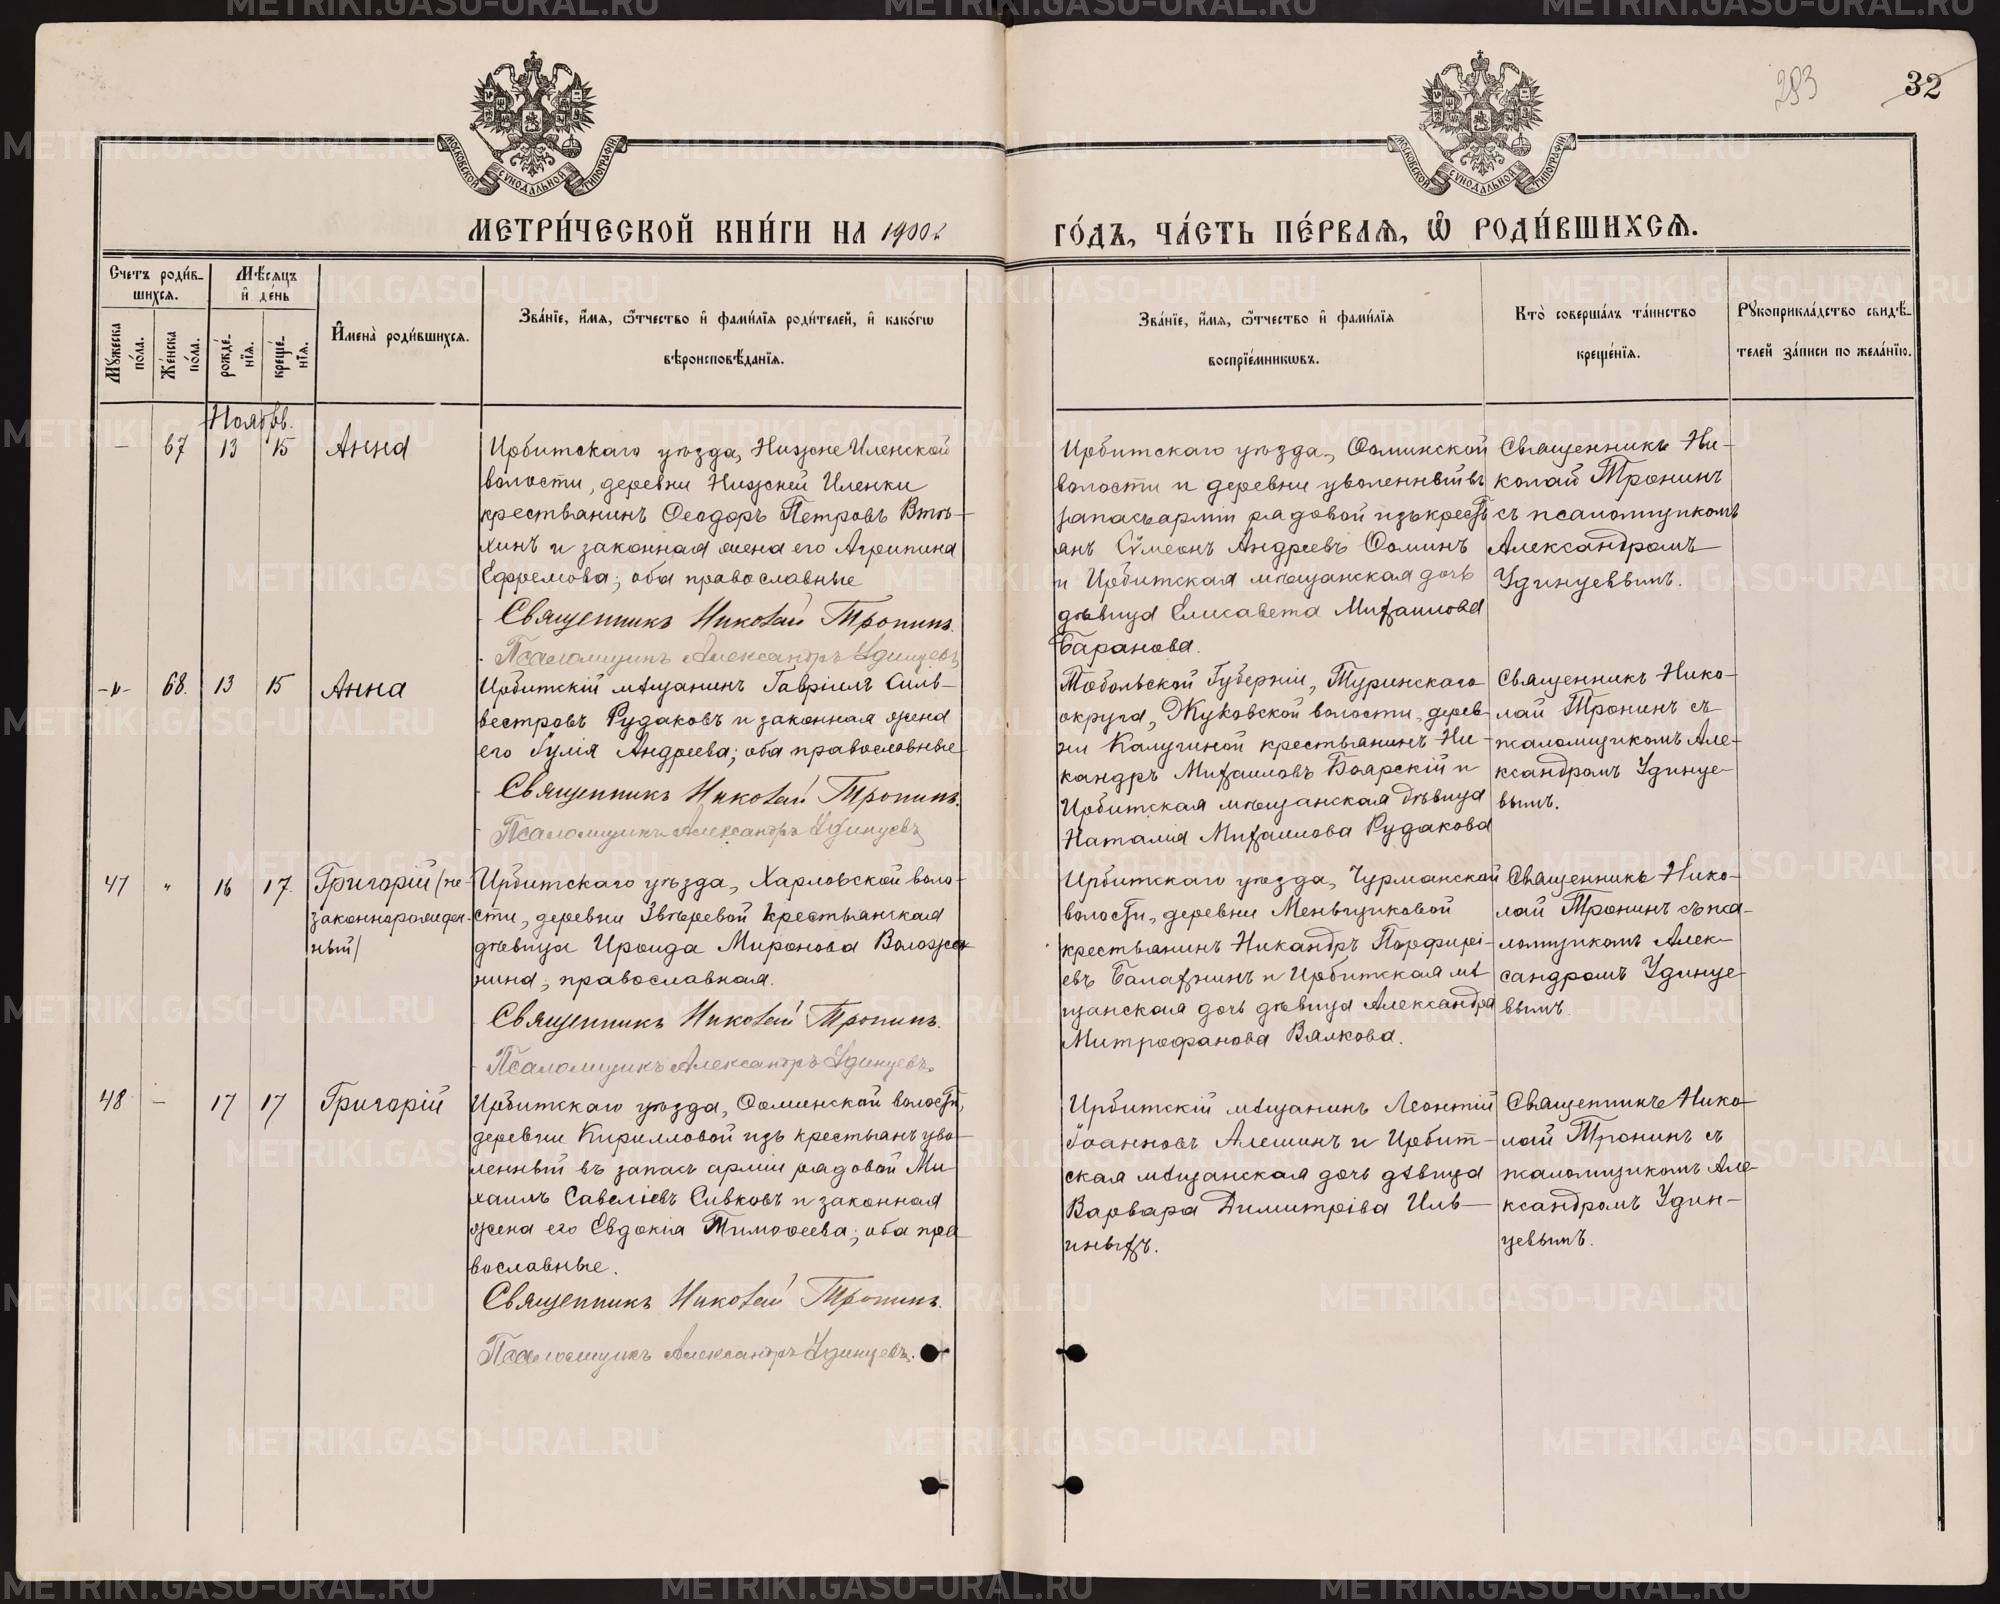 293
32
МОСКОВСКОЙ СѴНОДАЛЬНОЙ ТИПОГРАФІИ
МОСКОВСКОЙ СѴНОДАЛЬНОЙ ТИПОГРАФІИ
МЕТРИ́ЧЕСКОЙ КНИ́ГИ НА 1900 г.
ГО́ДЪ, ЧА́СТЬ ПЕ́РВАѦ, Ѽ РОДИ́ВШИХСѦ.
Счетъ роди́в-
шихсѧ.
Мꙋжеска по́ла.
Же́нска по́ла.
Мѣ́сѧцъ и҆ де́нь
рожде́-нїѧ.
креще́-нїѧ.
И҆мена̀ роди́вшихсѧ.
Зва́нїе, и҆́мѧ, ѻ҆́тчество и҆ фами́лїѧ роди́телей, и҆ како́гѡ
вѣроисповѣ́данїѧ.
Зва́нїе, и҆́мѧ, ѻ҆́тчество и҆ фами́лїѧ
воспрїе́мникѡвъ.
Кто̀ соверша́лъ та́инство
креще́нїѧ.
Рꙋкоприкла́дство свидѣ́-
телей за́писи по жела́нїю.
Ноябр.
— 67 13 15 Анна
Ирбитскаго уѣзда, Нижне Иленской
волости, деревни Нижней Иленки
крестьянинъ Ѳеодоръ Петровъ Втю-
хинъ и законная жена его Агрипина
Ефремова; оба православные
Священникъ Николай Тронинъ.
Псаломщикъ Александръ Удинцевъ
Ирбитскаго уѣзда, Ѳоминской
волости и деревни уволенный въ
запасъ арміи рядовой изъ крест
янъ Сѵмеонъ Андреевъ Ѳоминъ
и Ирбитская мѣщанская дочь
дѣвица Елисавета Михаилова
Баранова.
Священникъ Ни-
колай Тронинъ
съ псаломщикомъ
Александромъ
Удинцевымъ.
-"- 68. 13 15 Анна
Ирбитскій мѣщанинъ Гавріилъ Силь-
вестровъ Рудаковъ и законная жена
его Іулія Андреева; оба православные
Священникъ Николай Тронинъ.
Псаломщикъ Александръ Удинцевъ
Тобольской Губерніи, Туринскаго
округа, Жуковской волости, дерев
ни Калугиной крестьянинъ Ни-
кандръ Михаиловъ Боярскій и
Ирбитская мѣщанская дѣвица
Наталія Михаилова Рудакова
Священникъ Нико-
лай Тронинъ съ
псаломщикомъ Але-
ксандромъ Удинце-
вымъ.
47 " 16 17. Григорій /не-
законнорожден-
ный/
Ирбитскаго уѣзда, Харловской воло-
сти, деревни Звѣревой крестьянская
дѣвица Ироида Миронова Воложе-
нина, православная.
Священникъ Николай Тронинъ.
Псаломщикъ Александръ Удинцевъ.
Ирбитскаго уѣзда, Чурманской
волости, деревни Меньщиковой
крестьянинъ Никандръ Порфирі-
евъ Балахнинъ и Ирбитская мѣ
щанская дочь дѣвица Александра
Митрофанова Вялкова.
Священникъ Нико-
лай Тронинъ съ пса-
ломщикомъ Алек-
сандромъ Удинце-
вымъ.
48 — 17 17 Григорій
Ирбитскаго уѣзда, Ѳоминской волости,
деревни Кирилловой изъ крестьянъ уво-
ленный въ запасъ арміи рядовой Ми-
хаилъ Савеліевъ Сивковъ и законная
жена его Евдокія Тимоѳеева; оба пра
вославные.
Священникъ Николай Тронинъ.
Псаломщикъ Александръ Удинцевъ.
Ирбитскій мѣщанинъ Леонтій
Іоанновъ Алешинъ и Ирбит-
ская мѣщанская дочь дѣвица
Варвара Димитріева Иль-
иныхъ.
Священникъ Нико-
лай Тронинъ съ
псаломщикомъ Але-
ксандромъ Удин-
цевымъ.
METRIKI.GASO-URAL.RU